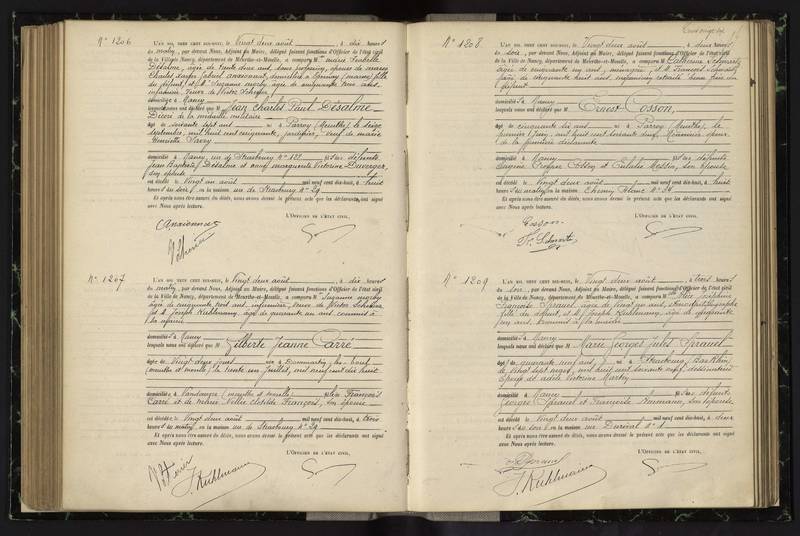 N° 1206
L'AN MIL NEUF CENT DIX-HUIT, le Vingt deux août à dix heures
du matin, par devant Nous, Adjoint au Maire, délégué faisant fonctions d'Officier de l'état civil
de la Ville de Nancy, département de Meurthe-et-Moselle, a comparu M Marie
Désalme, âgée de trente ans, sans profession, épouse de
Charles
du défunt) et Suzanne âgée de cinquante trois ans
infirmière, veuve de Victor
domiciliés à Nancy
lesquels nous ont déclaré que M Jean Charles Paul Désalme
Décoré de la médaille militaire
âgé de soixante sept ans né à Parroy (Meurthe), le seize
septembre, mil huit cent cinquante, jardinier, veuf de Marie
Henriette
domicilié à Nancy, rue de Strasbourg N° 127 fils des défunts
Jean Baptiste Désalme et Marguerite Victorine
son épouse
est décédé le Vingt un août mil neuf cent dix-huit, à huit
heures du soir, en la maison rue de Strasbourg N° 29
Et après nous être assuré du décès, nous avons dressé le présent acte que les déclarants ont signé
avec Nous après lecture.
L'OFFICIER DE L'ÉTAT CIVIL,
N° 1207
L'AN MIL NEUF CENT DIX-HUIT, le Vingt deux août, à dix heures
du matin, par devant Nous, Adjoint au Maire, délégué faisant fonctions d'Officier de l'état civil
de la Ville de Nancy, département de Meurthe-et-Moselle, a comparu M Suzanne
âgée de cinquante trois ans, infirmière, veuve de Victor
et Joseph Kuhlmann, âgé de quarante un ans, commis à
la mairie
domiciliés à Nancy
lesquels nous ont déclaré que M Gilberte Jeanne Carré
âgée de Vingt deux jours née à Dommartin
(Meurthe et Moselle), le trente un Juillet, mil neuf cent dix huit
domiciliée à Vandœuvre (Meurthe et Moselle) fille François
Carré et de Clotilde François, son épouse
est décédée le Vingt deux août mil neuf cent dix-huit, à trois
heures du matin, en la maison rue de Strasbourg N° 29
Et après nous être assuré du décès, nous avons dressé le présent acte que les déclarants ont signé
avec Nous après lecture.
L'OFFICIER DE L'ÉTAT CIVIL,
J. Kuhlmann
N° 1208
L'AN MIL NEUF CENT DIX-HUIT, le Vingt deux août, à deux heures
du soir, par devant Nous, Adjoint au Maire, délégué faisant fonctions d'Officier de l'état civil
de la Ville de Nancy, département de Meurthe-et-Moselle, a comparu M Catherine
âgée de cinquante un ans, ménagère, et François
âgé de cinquante huit ans, beau frère du
défunt
domiciliés à Nancy
lesquels nous ont déclaré que M Ernest Cosson,
âgé de cinquante dix ans né à Parroy (Meurthe), le
premier mil huit cent soixante huit, époux
de la première déclarante
domicilié à Nancy fils des défunts
Eugène Cosson et Eulalie Messin, son épouse
est décédé le Vingt deux août mil neuf cent dix-huit, à huit
heures du matin, en la maison Chemin Blanc N° 34
Et après nous être assuré du décès, nous avons dressé le présent acte que les déclarants ont signé
avec Nous après lecture.
L'OFFICIER DE L'ÉTAT CIVIL,
Cosson
N° 1209
L'AN MIL NEUF CENT DIX-HUIT, le Vingt deux août, à trois heures
du soir, par devant Nous, Adjoint au Maire, délégué faisant fonctions d'Officier de l'état civil
de la Ville de Nancy, département de Meurthe-et-Moselle, a comparu M Joséphine
Françoise Sprauel, âgée de vingt un ans, sténodactylographe
fille du défunt, et Joseph Kuhlmann, âgé de quarante
un ans, commis à la mairie
domiciliés à Nancy
lesquels nous ont déclaré que M Marie Georges Jules Sprauel
âgé de quarante neuf ans, né à Strasbourg (Bas Rhin)
le mil huit cent soixante neuf, dessinateur
époux de Adèle Victorine Martin
domicilié à Nancy fils des défunts
Georges Sprauel et Françoise son épouse
est décédé le Vingt deux août mil neuf cent dix-huit, à deux
heures du soir, en la maison rue N° 1
Et après nous être assuré du décès, nous avons dressé le présent acte que les déclarants ont signé
avec Nous après lecture.
L'OFFICIER DE L'ÉTAT CIVIL,
Sprauel
J. Kuhlmann